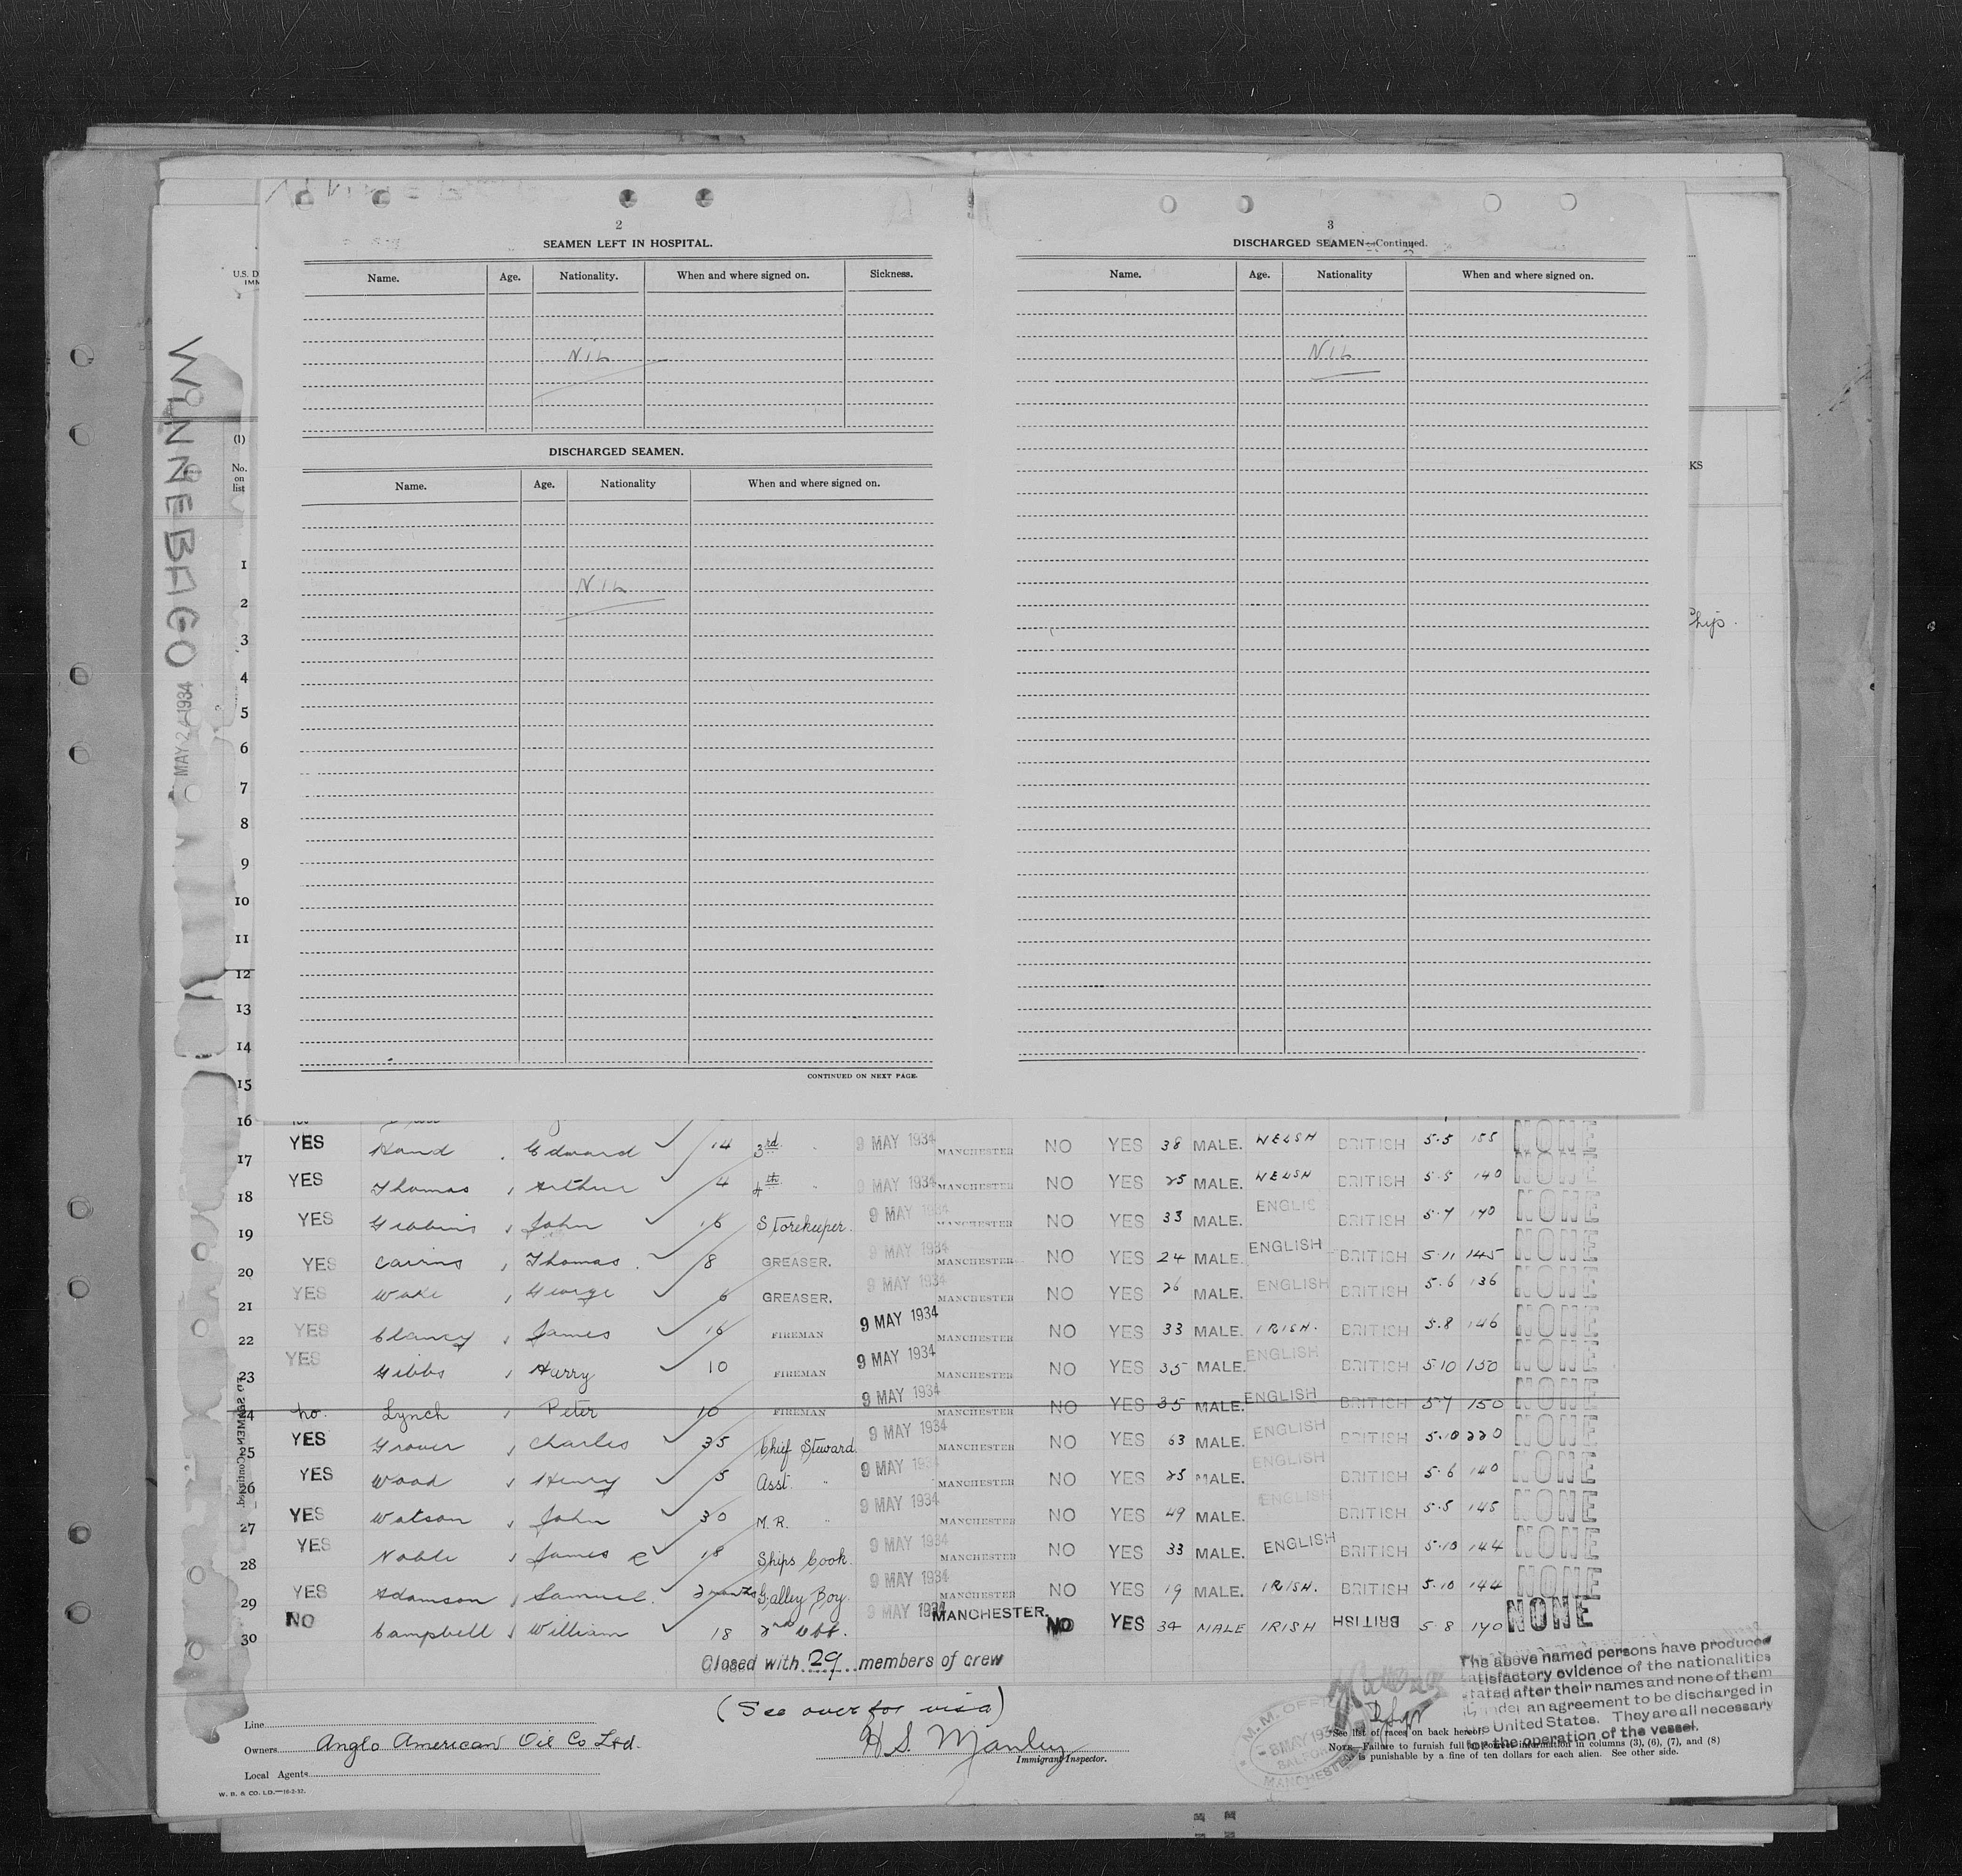 2
SEAMEN LEFT IN HOSPITAL.
Name. Age. Nationality. When and where signed on. Sickness.
NIL
DISCHARGED SEAMEN.
Name. Age. Nationality When and where signed on.
NIL
CONTINUED ON NEXT PAGE.
3
DISCHARGED SEAMEN—Continued.
Name. Age. Nationality When and where signed on.
NIL
U.S. D
IMM
WINNEBAGO
MAY 24 1934
(1)
No. on list
KS
Chip.
1
2
3
4
5
6
7
8
9
10
11
12
13
14
15
16
17 YES Hand, Edward 14 3rd " 9 MAY 1934 MANCHESTER NO YES 38 MALE. WELSH BRITISH 5·5 155 NONE
18 YES Thomas, Arthur 4 4th " 9 MAY 1934 MANCHESTER NO YES 25 MALE. WELSH BRITISH 5·5 140 NONE
19 YES John 16 Storekeeper. 9 MAY 1934 MANCHESTER NO YES 33 MALE. ENGLISH BRITISH 5·7 170 NONE
20 YES Cairns, Thomas. 8 GREASER. 9 MAY 1934 MANCHESTER NO YES 24 MALE. ENGLISH BRITISH 5·11 145 NONE
21 YES Wake, George 6 GREASER. 9 MAY 1934 MANCHESTER NO YES 26 MALE. ENGLISH BRITISH 5·6 136 NONE
22 YES Clancy, James 16 FIREMAN 9 MAY 1934 MANCHESTER NO YES 33 MALE. IRISH. BRITISH 5·8 146 NONE
23 YES Gibbs, Harry 10 FIREMAN 9 MAY 1934 MANCHESTER NO YES 35 MALE. ENGLISH BRITISH 5·10 150 NONE
24 no. Lynch, Peter 10 FIREMAN 9 MAY 1934 MANCHESTER NO YES 35 MALE. ENGLISH BRITISH 5·7 150 NONE
25 YES Grover, Charles 35 Chief Steward. 9 MAY 1934 MANCHESTER NO YES 63 MALE. ENGLISH BRITISH 5·10 220 NONE
26 YES Wood, Henry 5 Asst. " 9 MAY 1934 MANCHESTER NO YES 25 MALE. ENGLISH BRITISH 5·6 140 NONE
27 YES Watson, John 30 M.R. " 9 MAY 1934 MANCHESTER NO YES 49 MALE. ENGLISH BRITISH 5·5 145 NONE
28 YES Noble, James R 18 Ships Cook. 9 MAY 1934 MANCHESTER NO YES 33 MALE. ENGLISH BRITISH 5·10 144 NONE
29 YES Adamson, Samuel. 2 months Galley Boy. 9 MAY 1934 MANCHESTER NO YES 19 MALE. IRISH. BRITISH 5·10 144 NONE
30 NO Campbell, William 18 2nd Off. 9 MAY 1934 MANCHESTER. NO YES 34 MALE IRISH BRITISH 5 8 170 NONE
Closed with 29 members of crew
The above named persons have produced
satisfactory evidence of the nationalities
stated after their names and none of them
is under an agreement to be discharged in
the United States. They are all necessary
for the operation of the vessel.
(See over for visa)
Line
Owners Anglo American Oil Co Ltd.
Local Agents
H S Manley
Immigrant Inspector.
M.M. OFFICE
8 MAY 1934
SALFORD
MANCHESTER
*See list of races on back hereof.
NOTE.—Failure to furnish full or correct information in columns (3), (6), (7), and (8)
is punishable by a fine of ten dollars for each alien. See other side.
W. B. & CO. LD.—16-2-32.